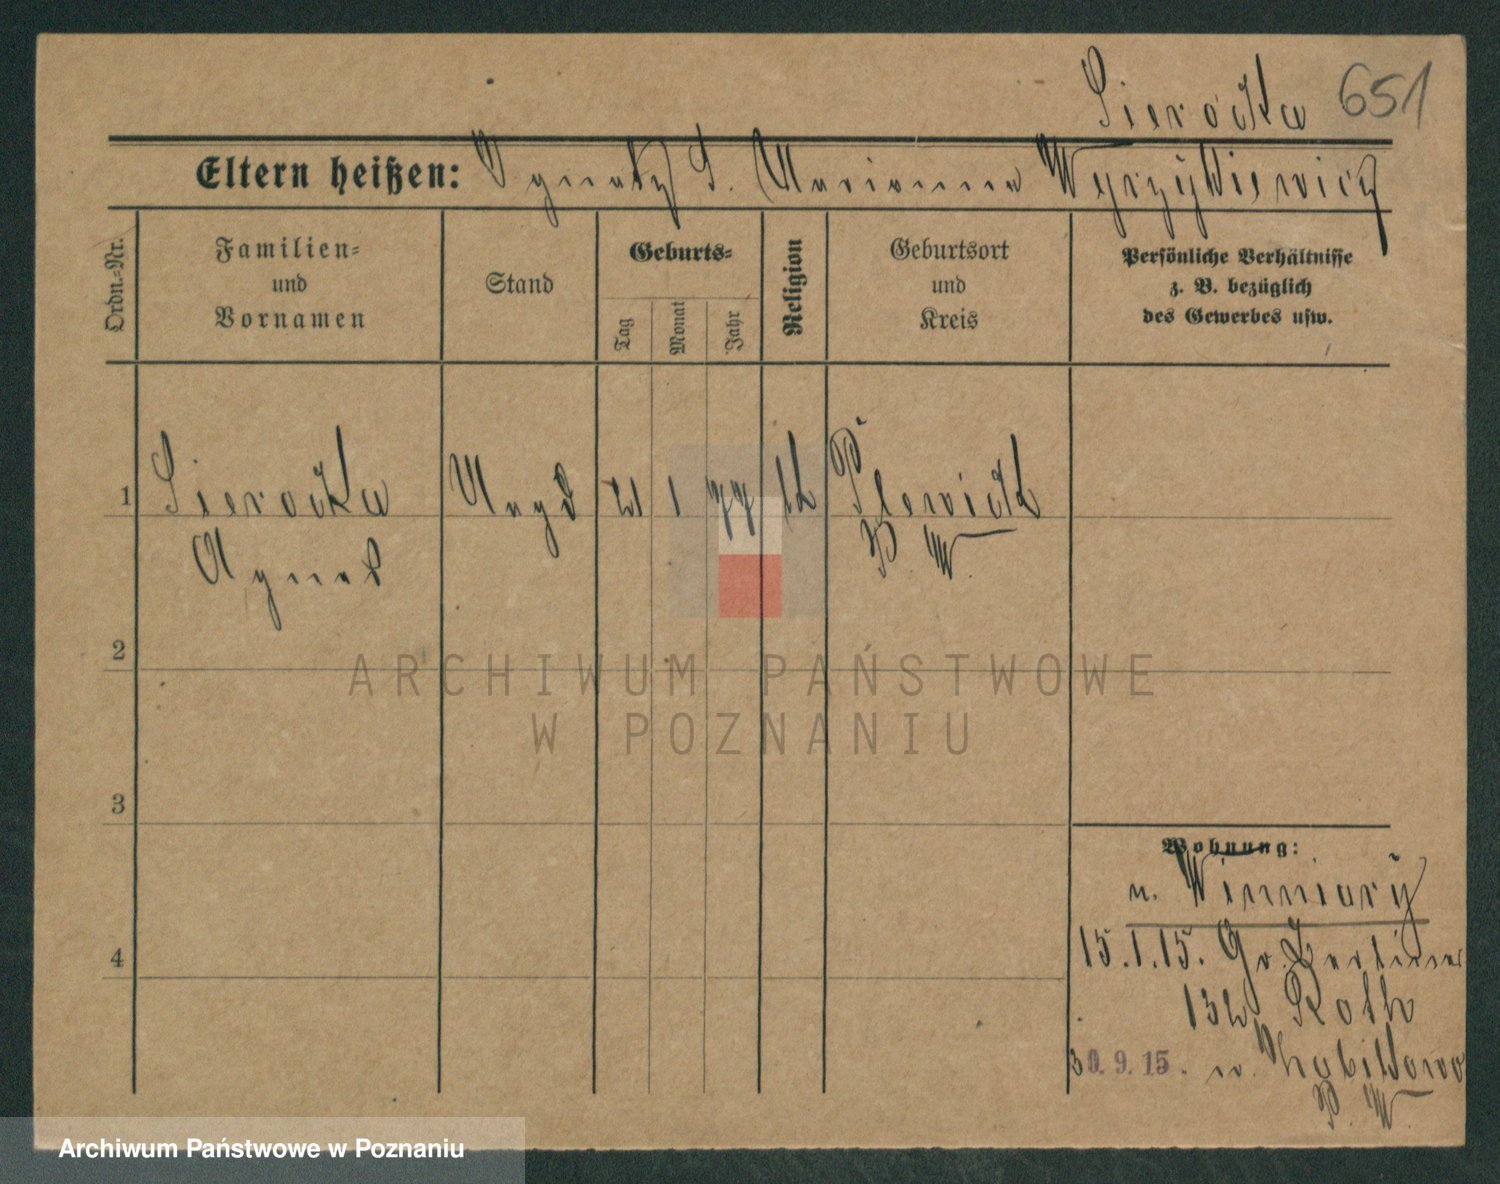 Sierocka 651
Eltern heißen: Ignatz S. Marianna
Ordn.-Nr.
Familien-
und
Vornamen
Stand
Geburts-
Tag
Monat
Jahr
Religion
Geburtsort
und
Kreis
Persönliche Verhältnisse
z. B. bezüglich
des Gewerbes usw.
1 Sierocka Magd 21 1 77 kth
Agnes P. W.
2
3
4
Wohnung:
n. Winiary
15.1.15. Gr. Berliner
Roth
30.9.15. n.
P. W.
ARCHIWUM PAŃSTWOWE
W POZNANIU
Archiwum Państwowe w Poznaniu